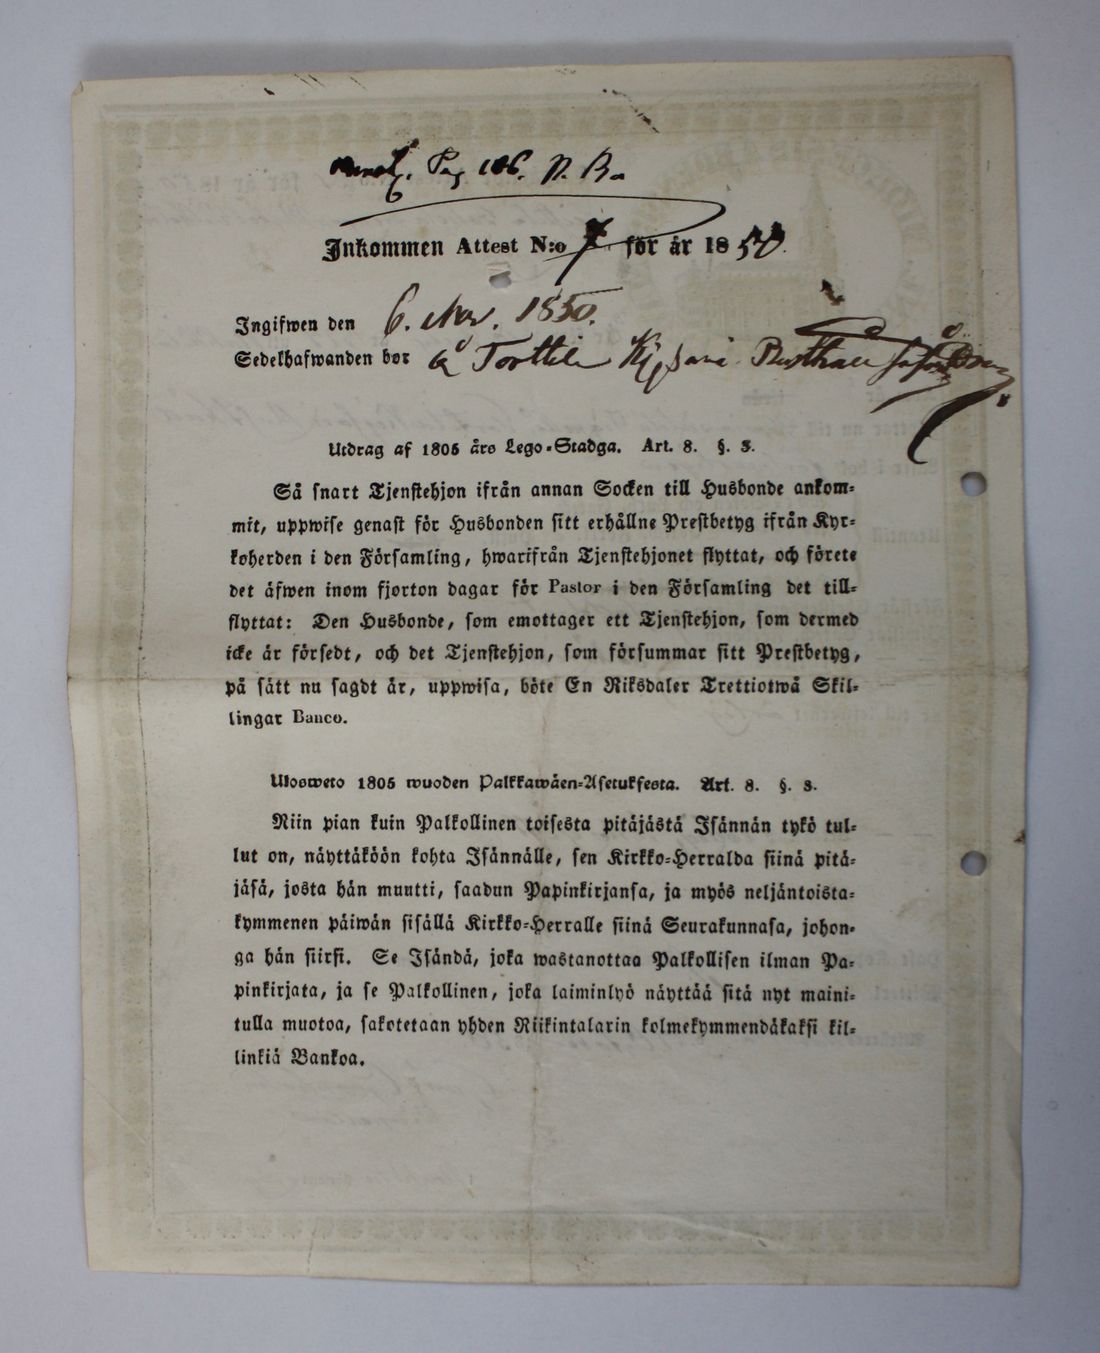 Pag 186. N. B.
Inkommen Attest N:o 7 för år 1850.
Ingifwen den 6. Nov. 1850.
Sedelhafwanden bor å Torttila
Utdrag af 1805 års Lego-Stadga. Art. 8. §. 3.
Så snart Tjenstehjon ifrån annan Socken till Husbonde ankom-
mit, uppwise genast för Husbonden sitt erhållne Prestbetyg ifrån Kyr-
koherden i den Församling, hwarifrån Tjenstehjonet flyttat, och förete
det äfwen inom fjorton dagar för Pastor i den Församling det till-
flyttat: Den Husbonde, som emottager ett Tjenstehjon, som dermed
icke är försedt, och det Tjenstehjon, som försummar sitt Prestbetyg,
på sätt nu sagdt är, uppwisa, böte En Riksdaler Trettiotwå Skil-
lingar Banco.
Ulosweto 1805 wuoden Palkkawäen-Asetuksesta. Art. 8. §. 3.
Niin pian kuin Palkollinen toisesta pitäjästä Isännän tykö tul-
lut on, näyttäköön kohta Isännälle, sen Kirkko-Herralda siinä pitä-
jäsä, josta hän muutti, saadun Papinkirjansa, ja myös neljäntoista-
kymmenen päiwän sisällä Kirkko-Herralle siinä Seurakunnasa, johon-
ga hän siirsi. Se Isändä, joka wastanottaa Palkollisen ilman Pa-
pinkirjata, ja se Palkollinen, joka laiminlyö näyttää sitä nyt maini-
tulla muotoa, sakotetaan yhden Riikintalarin kolmekymmendäkaksi kil-
linkiä Bankoa.